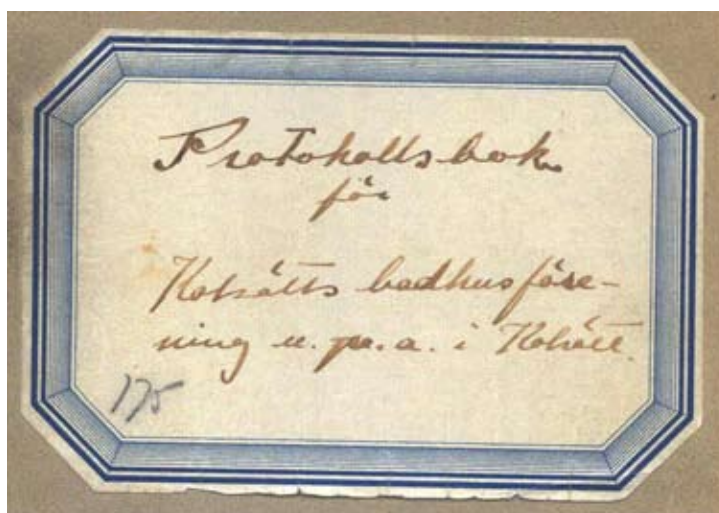 Protokollsbok
för
Kolsätts badhusföre-
ning u. p. a. i Kolsätt.
175